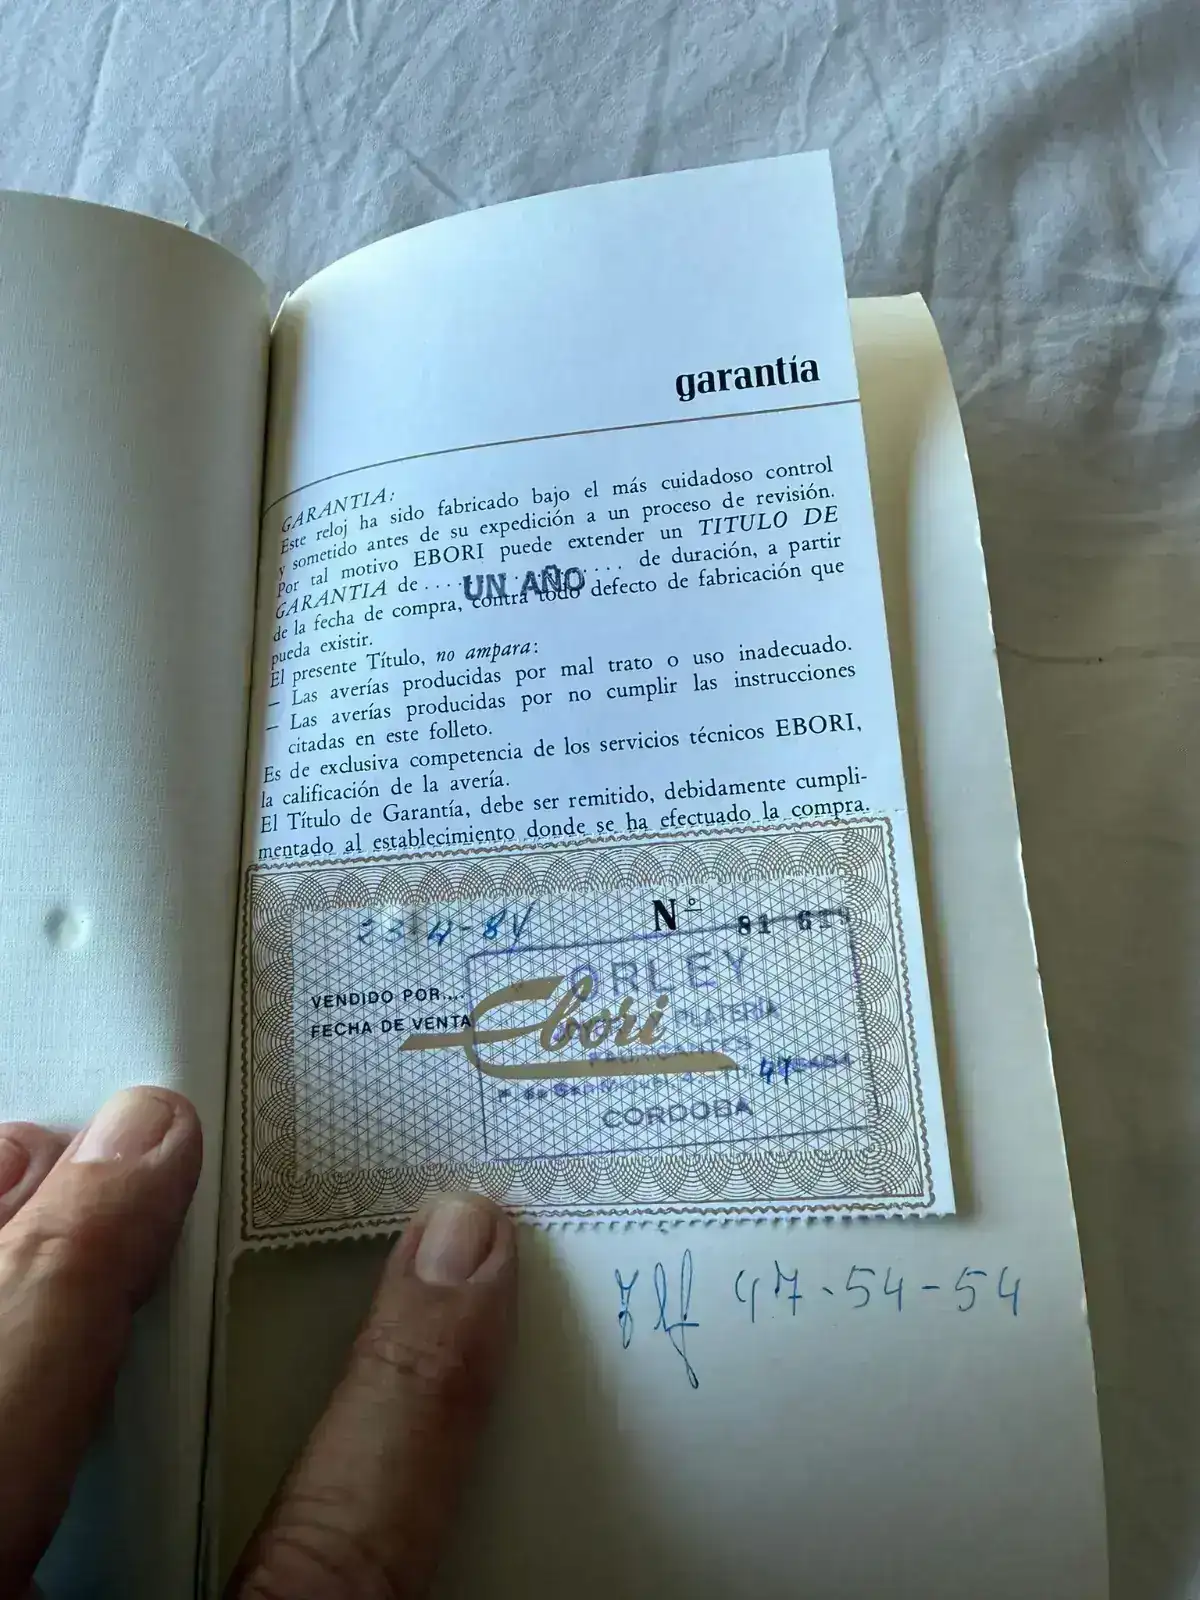 garantía
GARANTIA:
Este reloj ha sido fabricado bajo el más cuidadoso control
y sometido antes de su expedición a un proceso de revisión.
Por tal motivo EBORI puede extender un TITULO DE
GARANTIA de .... UN AÑO .... de duración, a partir
de la fecha de compra, contra todo defecto de fabricación que
pueda existir.
El presente Título, no ampara:
— Las averías producidas por mal trato o uso inadecuado.
— Las averías producidas por no cumplir las instrucciones
citadas en este folleto.
Es de exclusiva competencia de los servicios técnicos EBORI,
la calificación de la avería.
El Título de Garantía, debe ser remitido, debidamente cumpli-
mentado al establecimiento donde se ha efectuado la compra.
23-4-84 Nº 81
ORLEY
VENDIDO POR....
FECHA DE VENTA
Ebori
PLATERIA
FABRICANTES
47
CORDOBA
Tlf 47-54-54